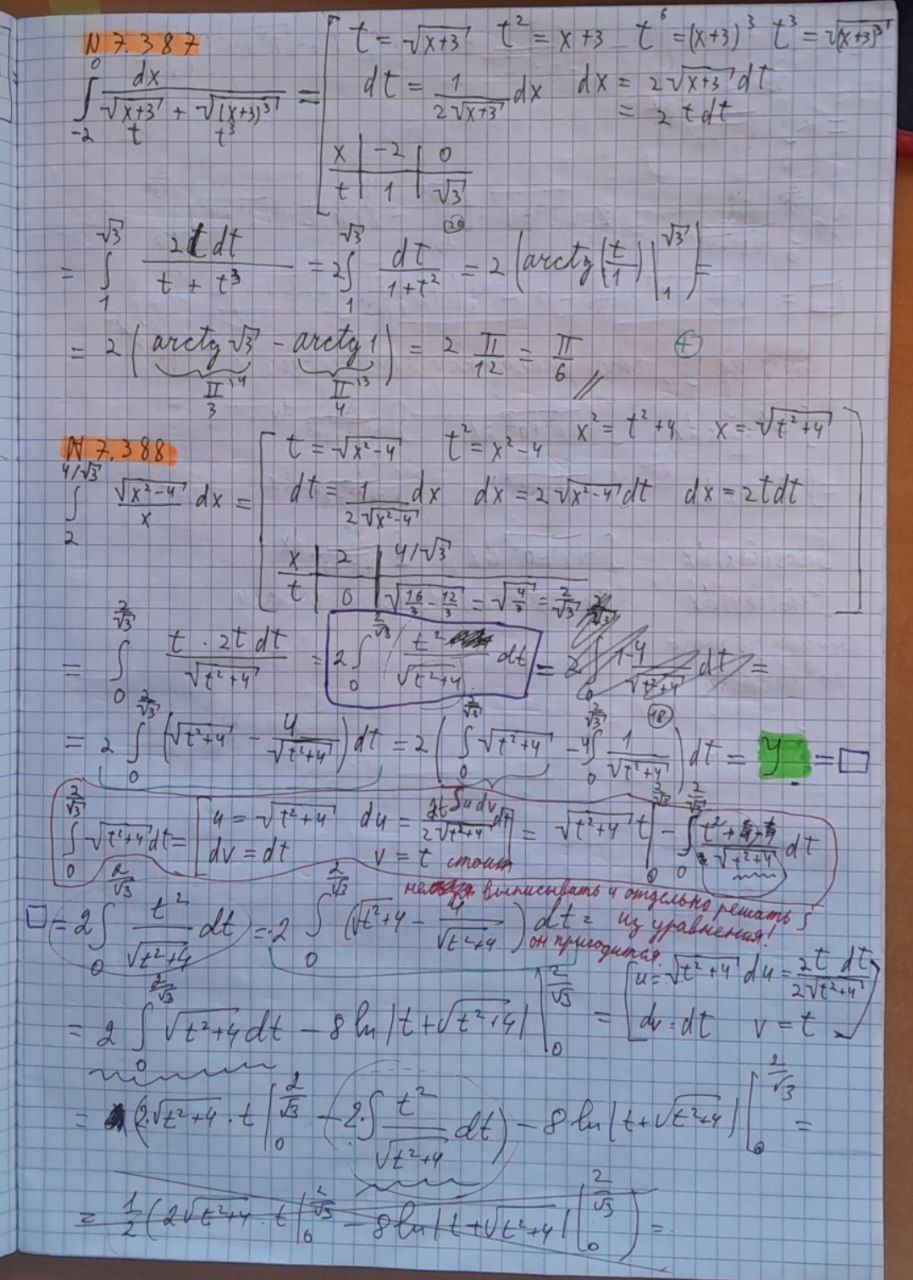 N 7.387
t = √(x+3)   t² = x+3   t⁶ = (x+3)³   t³ = √(x+3)³
∫₋₂⁰ dx / (√(x+3) + √(x+3)³) =
t   t³
dt = 1/(2√(x+3)) dx   dx = 2√(x+3) dt
= 2t dt
x | -2 | 0
t | 1 | √3
= ∫₁^√3 2t dt / (t + t³) = 2∫₁^√3 dt / (1+t²) = 2 (arctg(t/1) |₁^√3) =
(20)
= 2 (arctg √3 - arctg 1) = 2 π/12 = π/6 //   (+)
π/3 14   π/4 13
N 7.388
t = √(x²-4)   t² = x²-4   x² = t²+4   x = √(t²+4)
∫₂^(4/√3) √(x²-4)/x dx =
dt = 1/(2√(x²-4)) dx   dx = 2√(x²-4) dt   dx = 2t dt
x | 2 | 4/√3
t | 0 | √(16/3 - 12/3) = √(4/3) = 2/√3
= ∫₀^(2/√3) t · 2t dt / √(t²+4) = 2∫₀^(2/√3) t²/√(t²+4) dt = 2 ∫₀^(2/√3) 1-4/√(t²+4) dt =
= 2 ∫₀^(2/√3) (√(t²+4) - 4/√(t²+4)) dt = 2 (∫₀^(2/√3) √(t²+4) - 4∫₀^(2/√3) 1/√(t²+4)) dt = y = □
(18)
∫₀^(2/√3) √(t²+4) dt = [u = √(t²+4)   du = 2t/(2√(t²+4)) dt
dv = dt   v = t] = √(t²+4) t |₀^(2/√3) - ∫₀^(2/√3) t²+4-4/√(t²+4) dt
∫u dv
стоит
выписывать и отдельно решать ∫
из уравнения!
он пригодится.
□ = 2∫₀^(2/√3) t²/√(t²+4) dt = 2 ∫₀^(2/√3) (√(t²+4) - 4/√(t²+4)) dt =
= 2 ∫₀^(2/√3) √(t²+4) dt - 8 ln|t+√(t²+4)| |₀^(2/√3) = [u = √(t²+4)   du = 2t dt/(2√(t²+4))
dv = dt   v = t]
= (2·√(t²+4) · t |₀^(2/√3) - 2·∫ t²/√(t²+4) dt) - 8 ln|t+√(t²+4)| |₀^(2/√3) =
= 1/2 (2√(t²+4) · t |₀^(2/√3) - 8 ln|t+√(t²+4)| |₀^(2/√3)) =